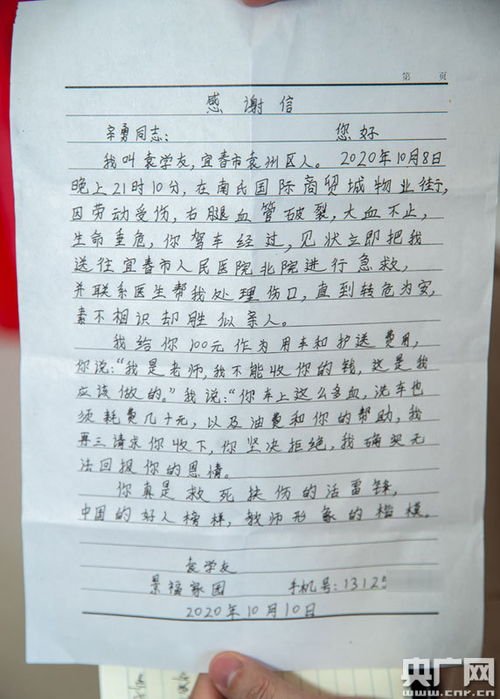 第 页
感谢信
辛勇同志： 您好
我叫袁学友，宜春市袁州区人。2020年10月8日
晚上21时10分，在南氏国际商贸城物业街，
因劳动受伤，右腿血管破裂，大血不止，
生命重危，你驾车经过，见状立即把我
送往宜春市人民医院北院进行急救，
并联系医生帮我处理伤口，直到转危为安，
素不相识却胜似亲人。
我给你100元作为用车和护送费用，
你说：“我是老师，我不能收你的钱，这是我
应该做的。”我说：“你车上这么多血，洗车也
须耗费几十元，以及油费和你的帮助，我
再三请求你收下，你坚决拒绝，我确实无
法回报你的恩情。
你真是救死扶伤的活雷锋，
中国的好人榜样，教师形象的楷模。
袁学友
景福家园 手机号：13125
2020年10月10日
央广网
www.cnr.cn